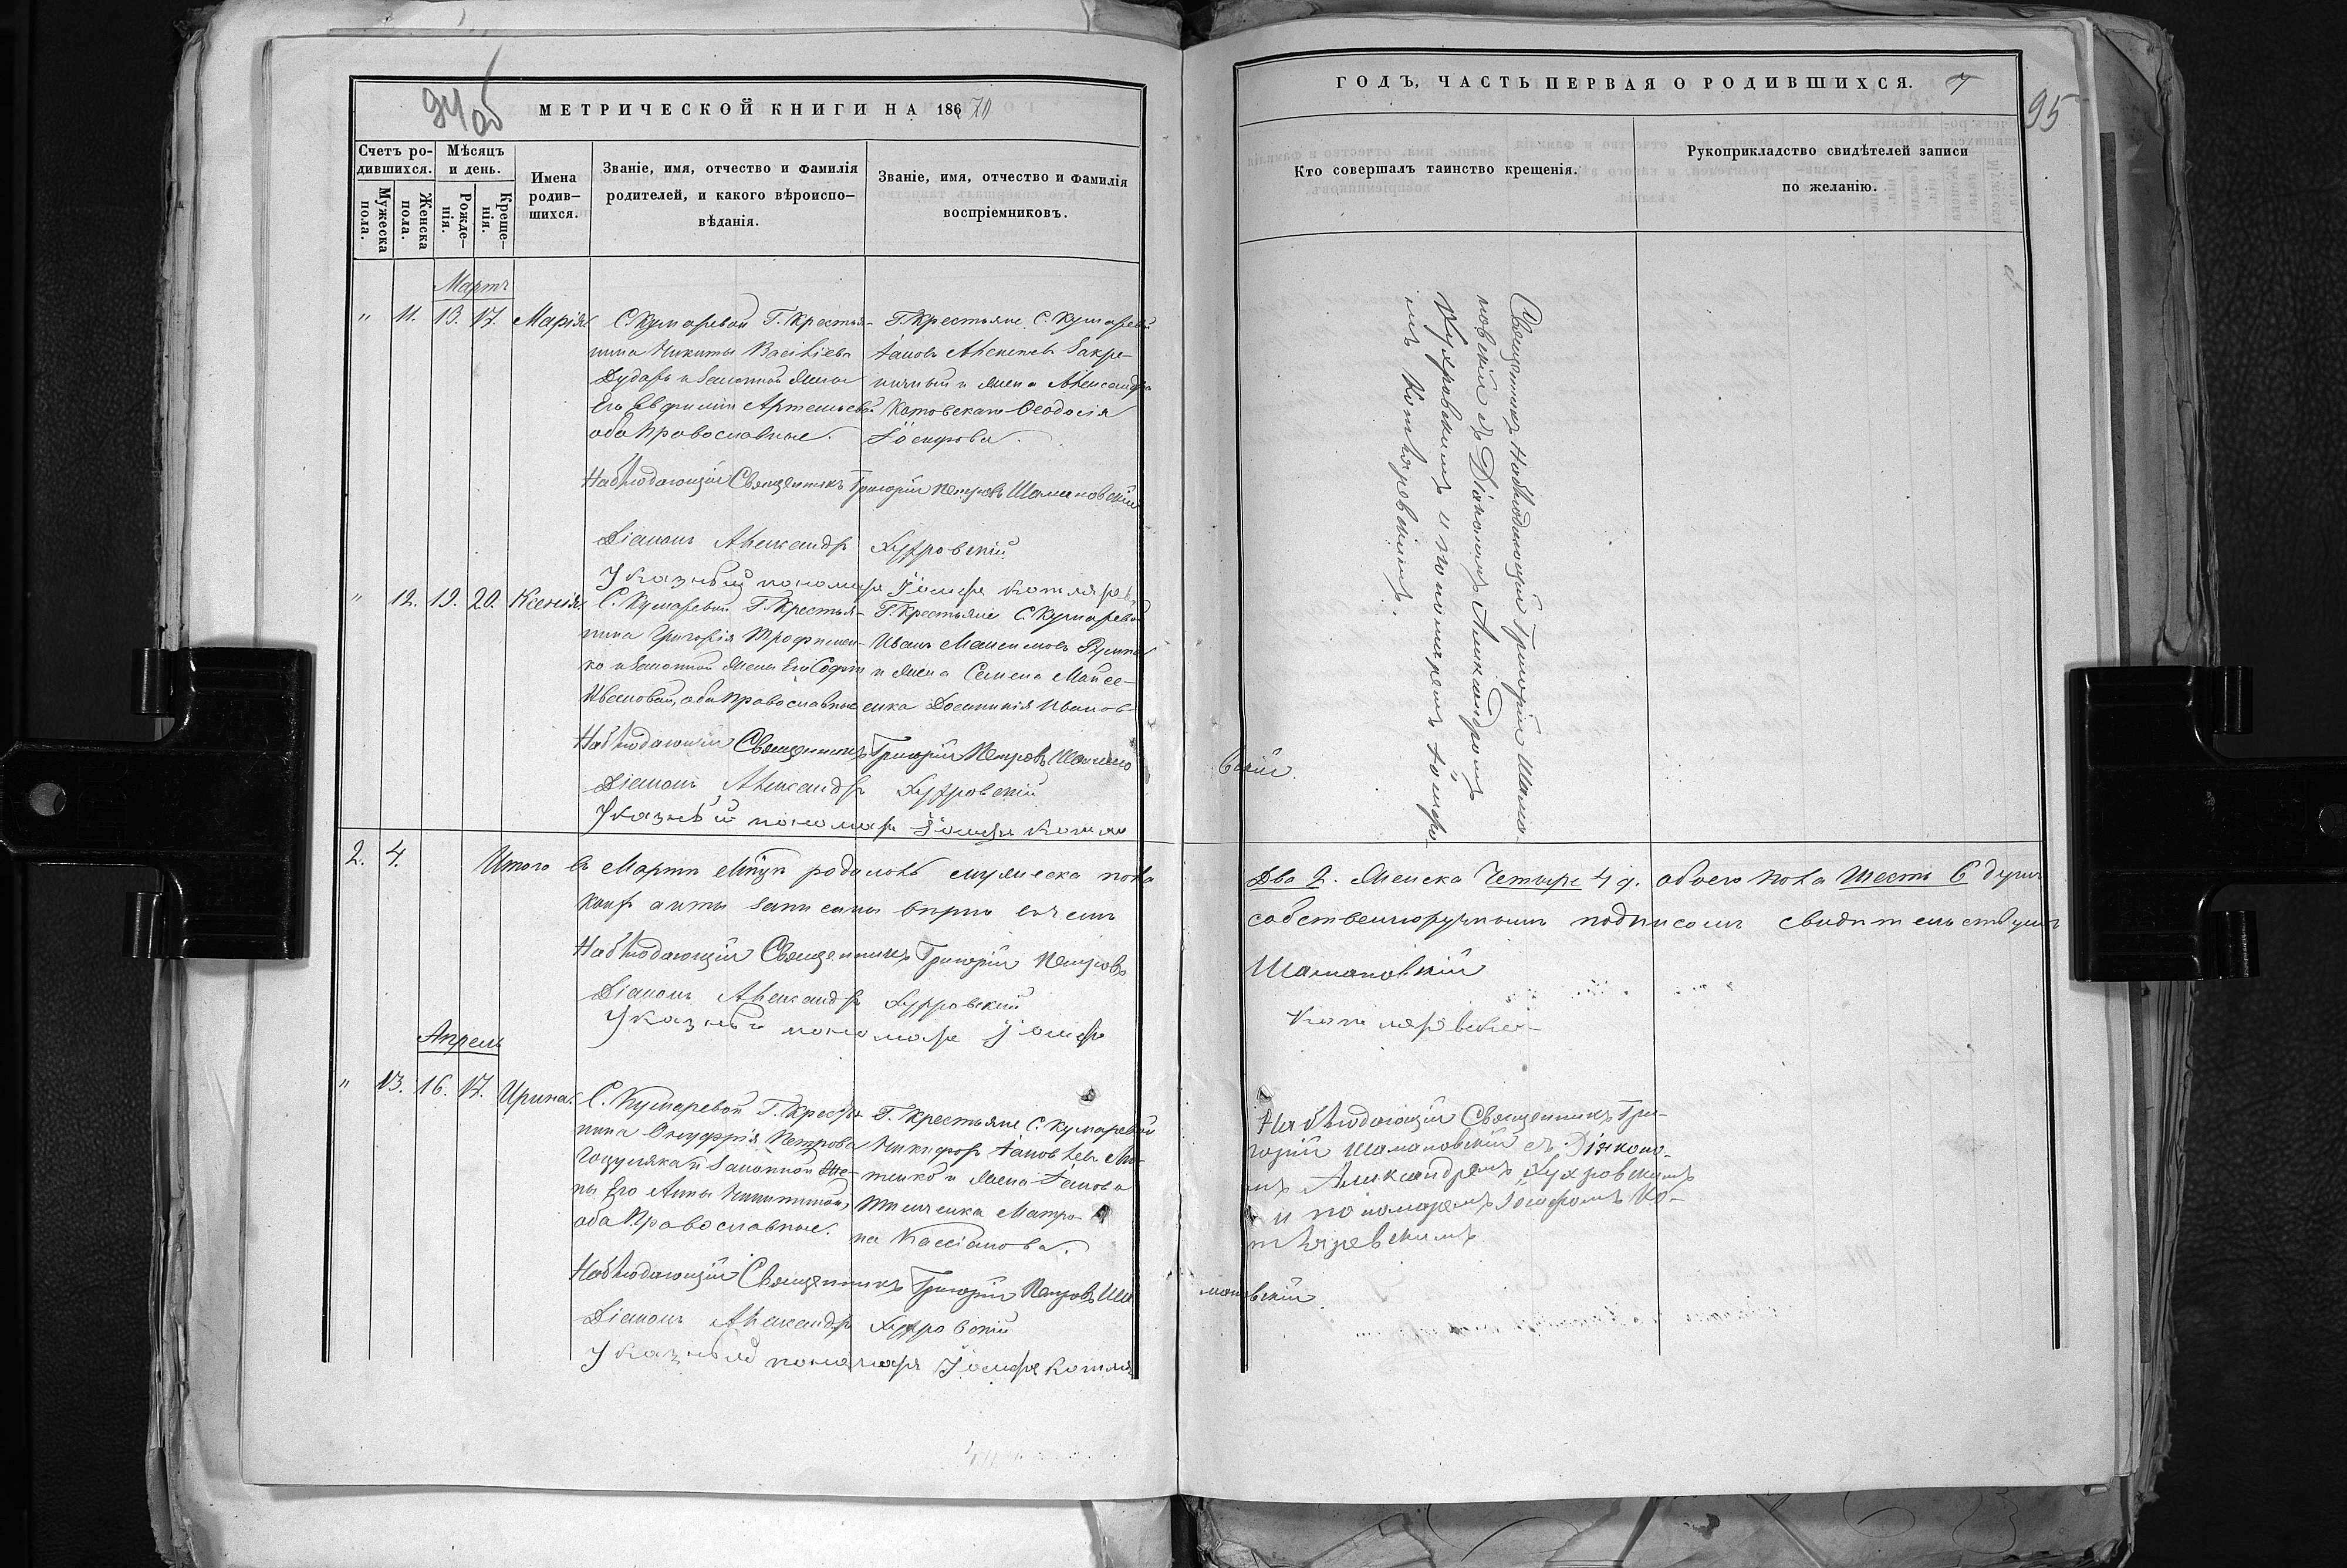 94 об
МЕТРИЧЕСКОЙ КНИГИ НА 1870
Счетъ родившихся.
Мужеска пола.
Женска пола.
Мѣсяцъ и день.
Рожденія.
Крещенія.
Имена родившихся.
Званіе, имя, отчество и фамилія родителей, и какого вѣроисповѣданія.
Званіе, имя, отчество и фамилія воспріемниковъ.
Мартъ
" 11. 13. 17. Марія
С. Кумаревой Г. Крестья-
нина Никиты Василіева
Дударь и законной жены
Его Евфиміи Артемьевой
оба Православные.
Г. Крестьяне С. Кумаревой
Іаковъ Алексѣевъ Закре-
ничный и жена Александра
Котовскаго Ѳеодосія
Іосифова.
Наблюдающій Священникъ Григорій Петровъ Шамановскій
Діаконъ Александръ Кухровскій
Указный пономарь Іосифъ Котляревс
" 12. 19. 20. Ксенія
С. Кумаревой Г. Крестья-
нина Григорія Трофимен-
ко и законной жены Его Софіи
Ивановой, оба Православные
Г. Крестьяне С. Кумаревой
Иванъ Максимовъ
и жена Семена Мойсе-
енка Домникія Иванов
Наблюдающій Священникъ Григорій Петровъ Шамано
вскій.
Діаконъ Александръ Кухровскій
Указный пономарь Іосифъ Котля
2. 4. Итого въ Мартѣ м-цѣ родилось мужеска пола
коихъ акты записаны вѣрно въ чемъ
Наблюдающій Священникъ Григорій Петровъ
Діаконъ Александръ Кухровскій
Указный пономарь Іосифъ
Апрель
" 13. 16. 17. Ирина
С. Кумаревой Г. Крестья-
нина Онуфрія Петрова
Гоцуляка и законной же-
ны Его Анны Никитиной,
оба Православные.
Г. Крестьяне С. Кумаревой
Никифоръ Іаковлевъ
и жена Іакова
Матро-
на Кассіанова.
Наблюдающій Священникъ Григорій Петровъ Ша
мановскій
Діаконъ Александръ Кухровскій
Указный пономарь Іосифъ Котля
ГОДЪ, ЧАСТЬ ПЕРВАЯ О РОДИВШИХСЯ. 7
95
Кто совершалъ таинство крещенія.
Рукоприкладство свидѣтелей записи по желанію.
Священникъ Наблюдающій Григорій Шама-
новскій съ Діакономъ Александромъ
Кухровскимъ и пономаремъ Іосифо-
мъ Котляревскимъ.
Два 2. Женска Четыре 4 д. обоего пола Шесть 6 душъ
собственноручнымъ подписомъ свидѣтельствуемъ
Шамановскій
Котляревскій
Наблюдающій Священникъ Гри-
горій Шамановскій съ Діаконо-
мъ Александромъ Кухровскимъ
и пономаремъ Іосифомъ Ко-
тляревскимъ